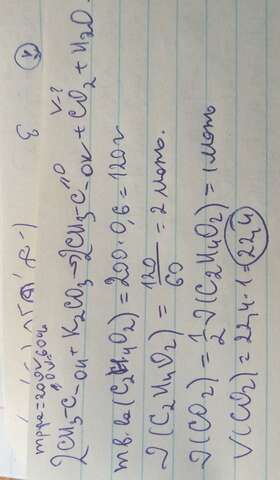 mр-ра=200г
V-?
2CH₃-C-OH + K₂CO₃→2CH₃-C-OK + CO₂ + H₂O.
mв.ва(C₂H₄O₂) = 200·0,6 = 120г
ν(C₂H₄O₂) = 120/60 = 2 моль.
ν(CO₂) = 1/2 ν(C₂H₄O₂) = 1 моль
V(CO₂) = 22,4·1 = 22,4